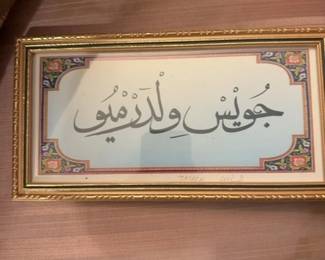 جُويْس وِلْدَرْمْيُو